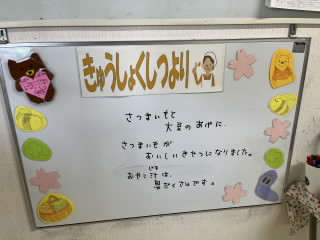 きゅうしょくしつより
さつまいもと
大豆のあげに、
さつまいもが
おいしいきせつになりました。
おやこ汁は、
じる
具だくさんです。